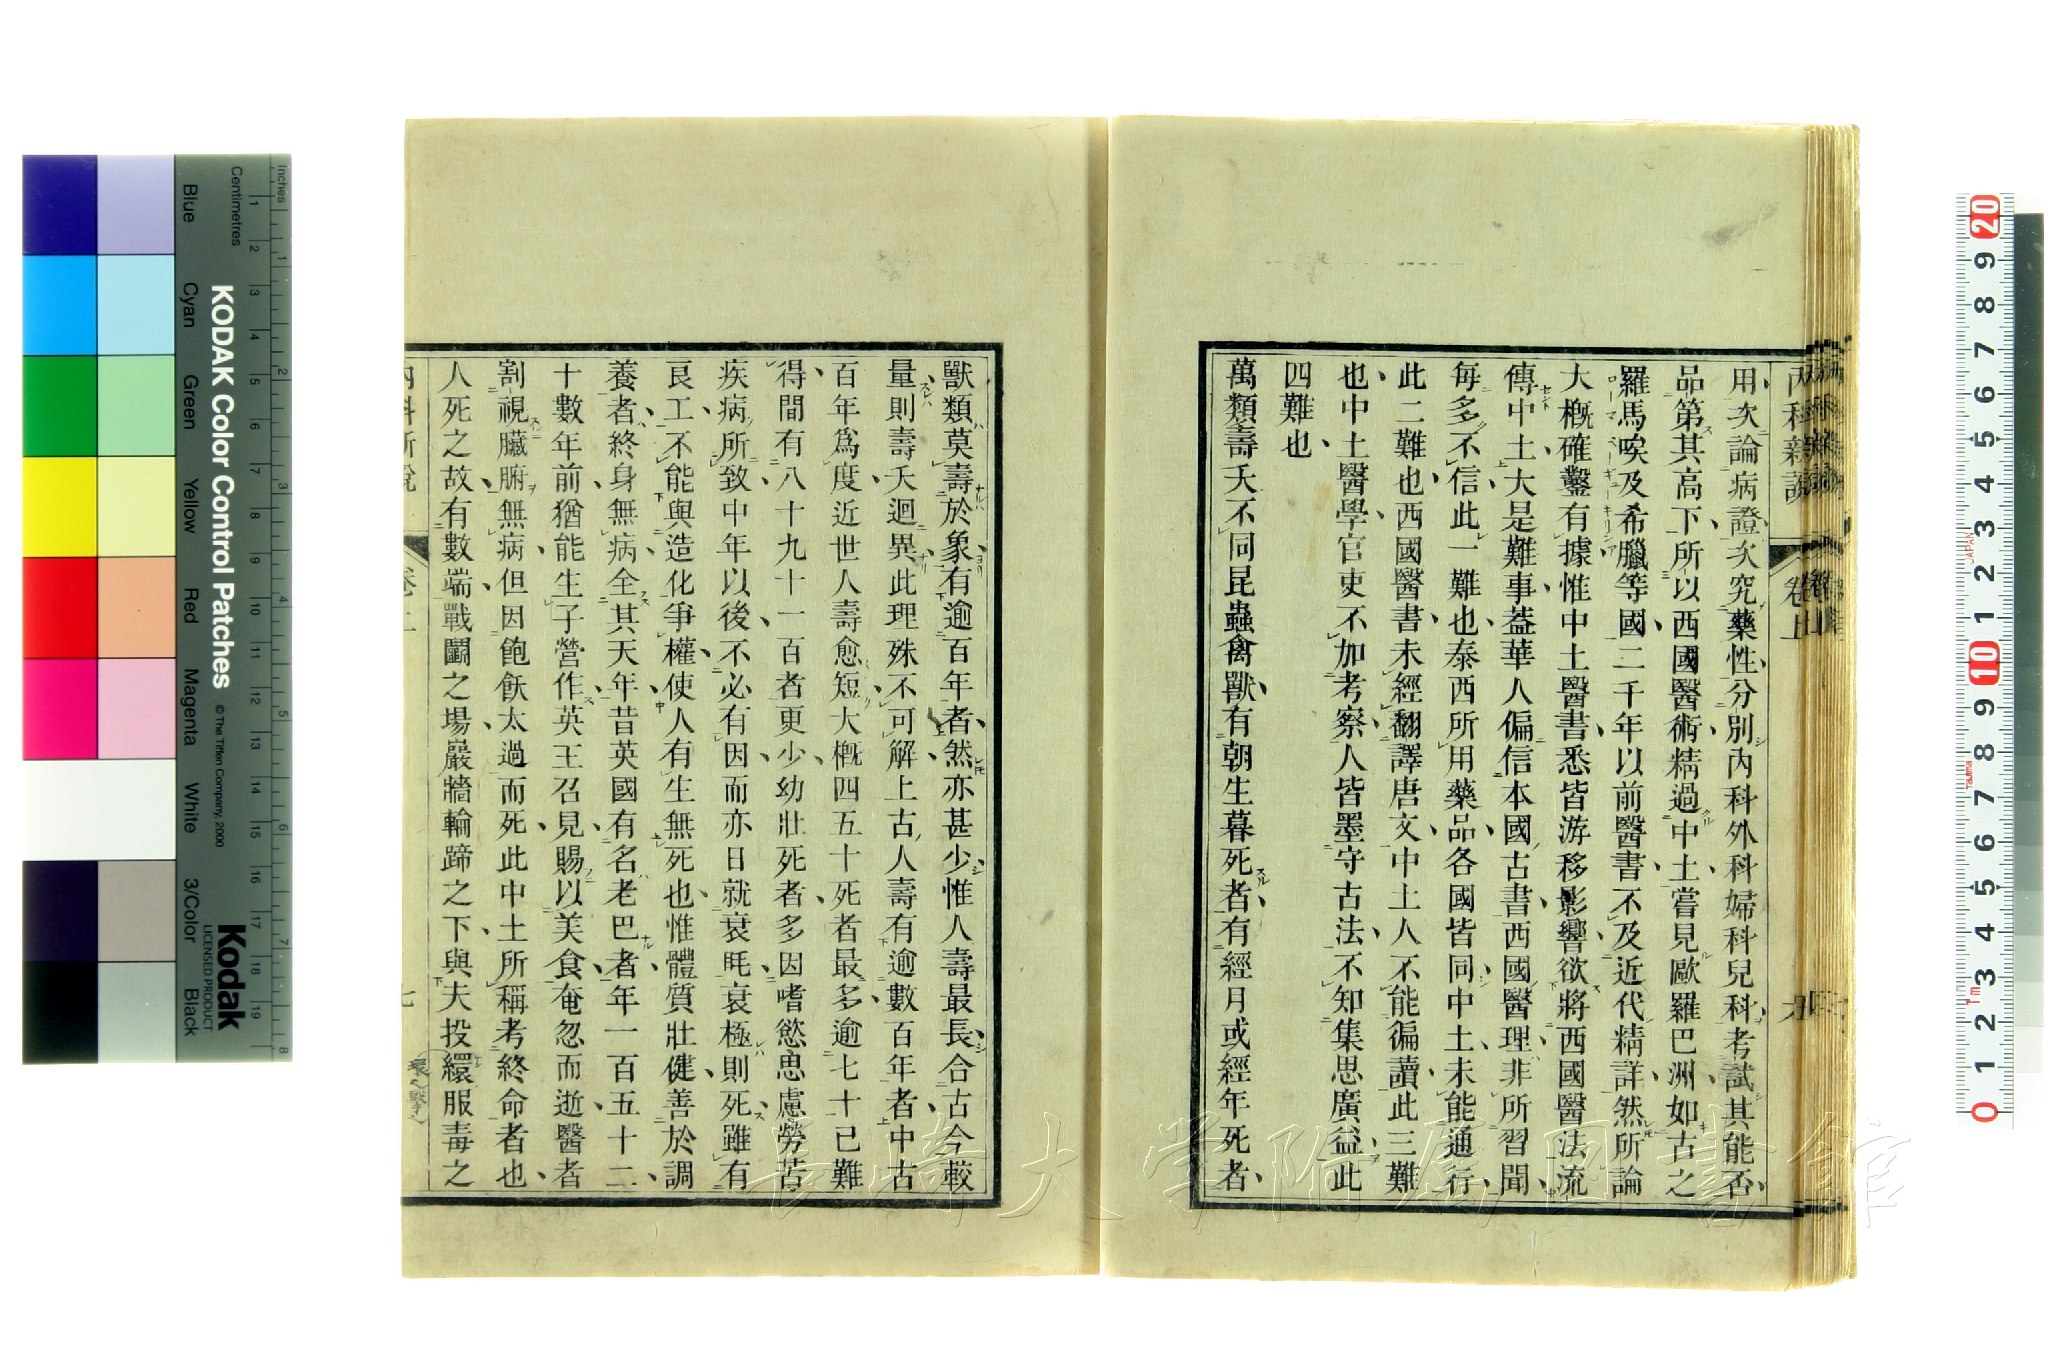 用次論病證次究藥性分別內科外科婦科兒科考試其能否
品第其高下所以西國醫術精過中土嘗見歐羅巴洲如古之
羅馬唉及希臘等國二千年以前醫書不及近代精詳然所論
大概確鑿有據惟中土醫書悉皆游移影響欲將西國醫法流
傳中土大是難事葢華人偏信本國古書西國醫理非所習聞
每多不信此一難也泰西所用藥品各國皆同中土未能通行
此二難也西國醫書未經翻譯唐文中土人不能徧讀此三難
也中土醫學官吏不加考察人皆墨守古法不知集思廣益此
四難也
萬類壽夭不同昆蟲禽獸有朝生暮死者有經月或經年死者
獸類莫壽於象有逾百年者然亦甚少惟人壽最長合古今較
量則壽夭迴異此理殊不可解上古人壽有逾數百年者中古
百年爲度近世人壽愈短大概四五十死者最多逾七十已難
得間有八十九十一百者更少幼壯死者多因嗜慾思慮勞苦
疾病所致中年以後不必有因而亦日就衰眊衰極則死雖有
良工不能與造化爭權使人有生無死也惟體質壯健善於調
養者終身無病全其天年昔英國有名老巴者年一百五十二
十數年前猶能生子營作英王召見賜以美食奄忽而逝醫者
割視臟腑無病但因飽飫太過而死此中土所稱考終命者也
人死之故有數端戰鬭之場巖牆輪蹄之下與夫投繯服毒之
內科新說
卷上
七
內科新說
卷上
KODAK Color Control Patches
© The Tiffen Company, 2000
Kodak
LICENSED PRODUCT
Inches
Centimetres
Blue
Cyan
Green
Yellow
Red
Magenta
White
3/Color
Black
長崎大学附属図書館